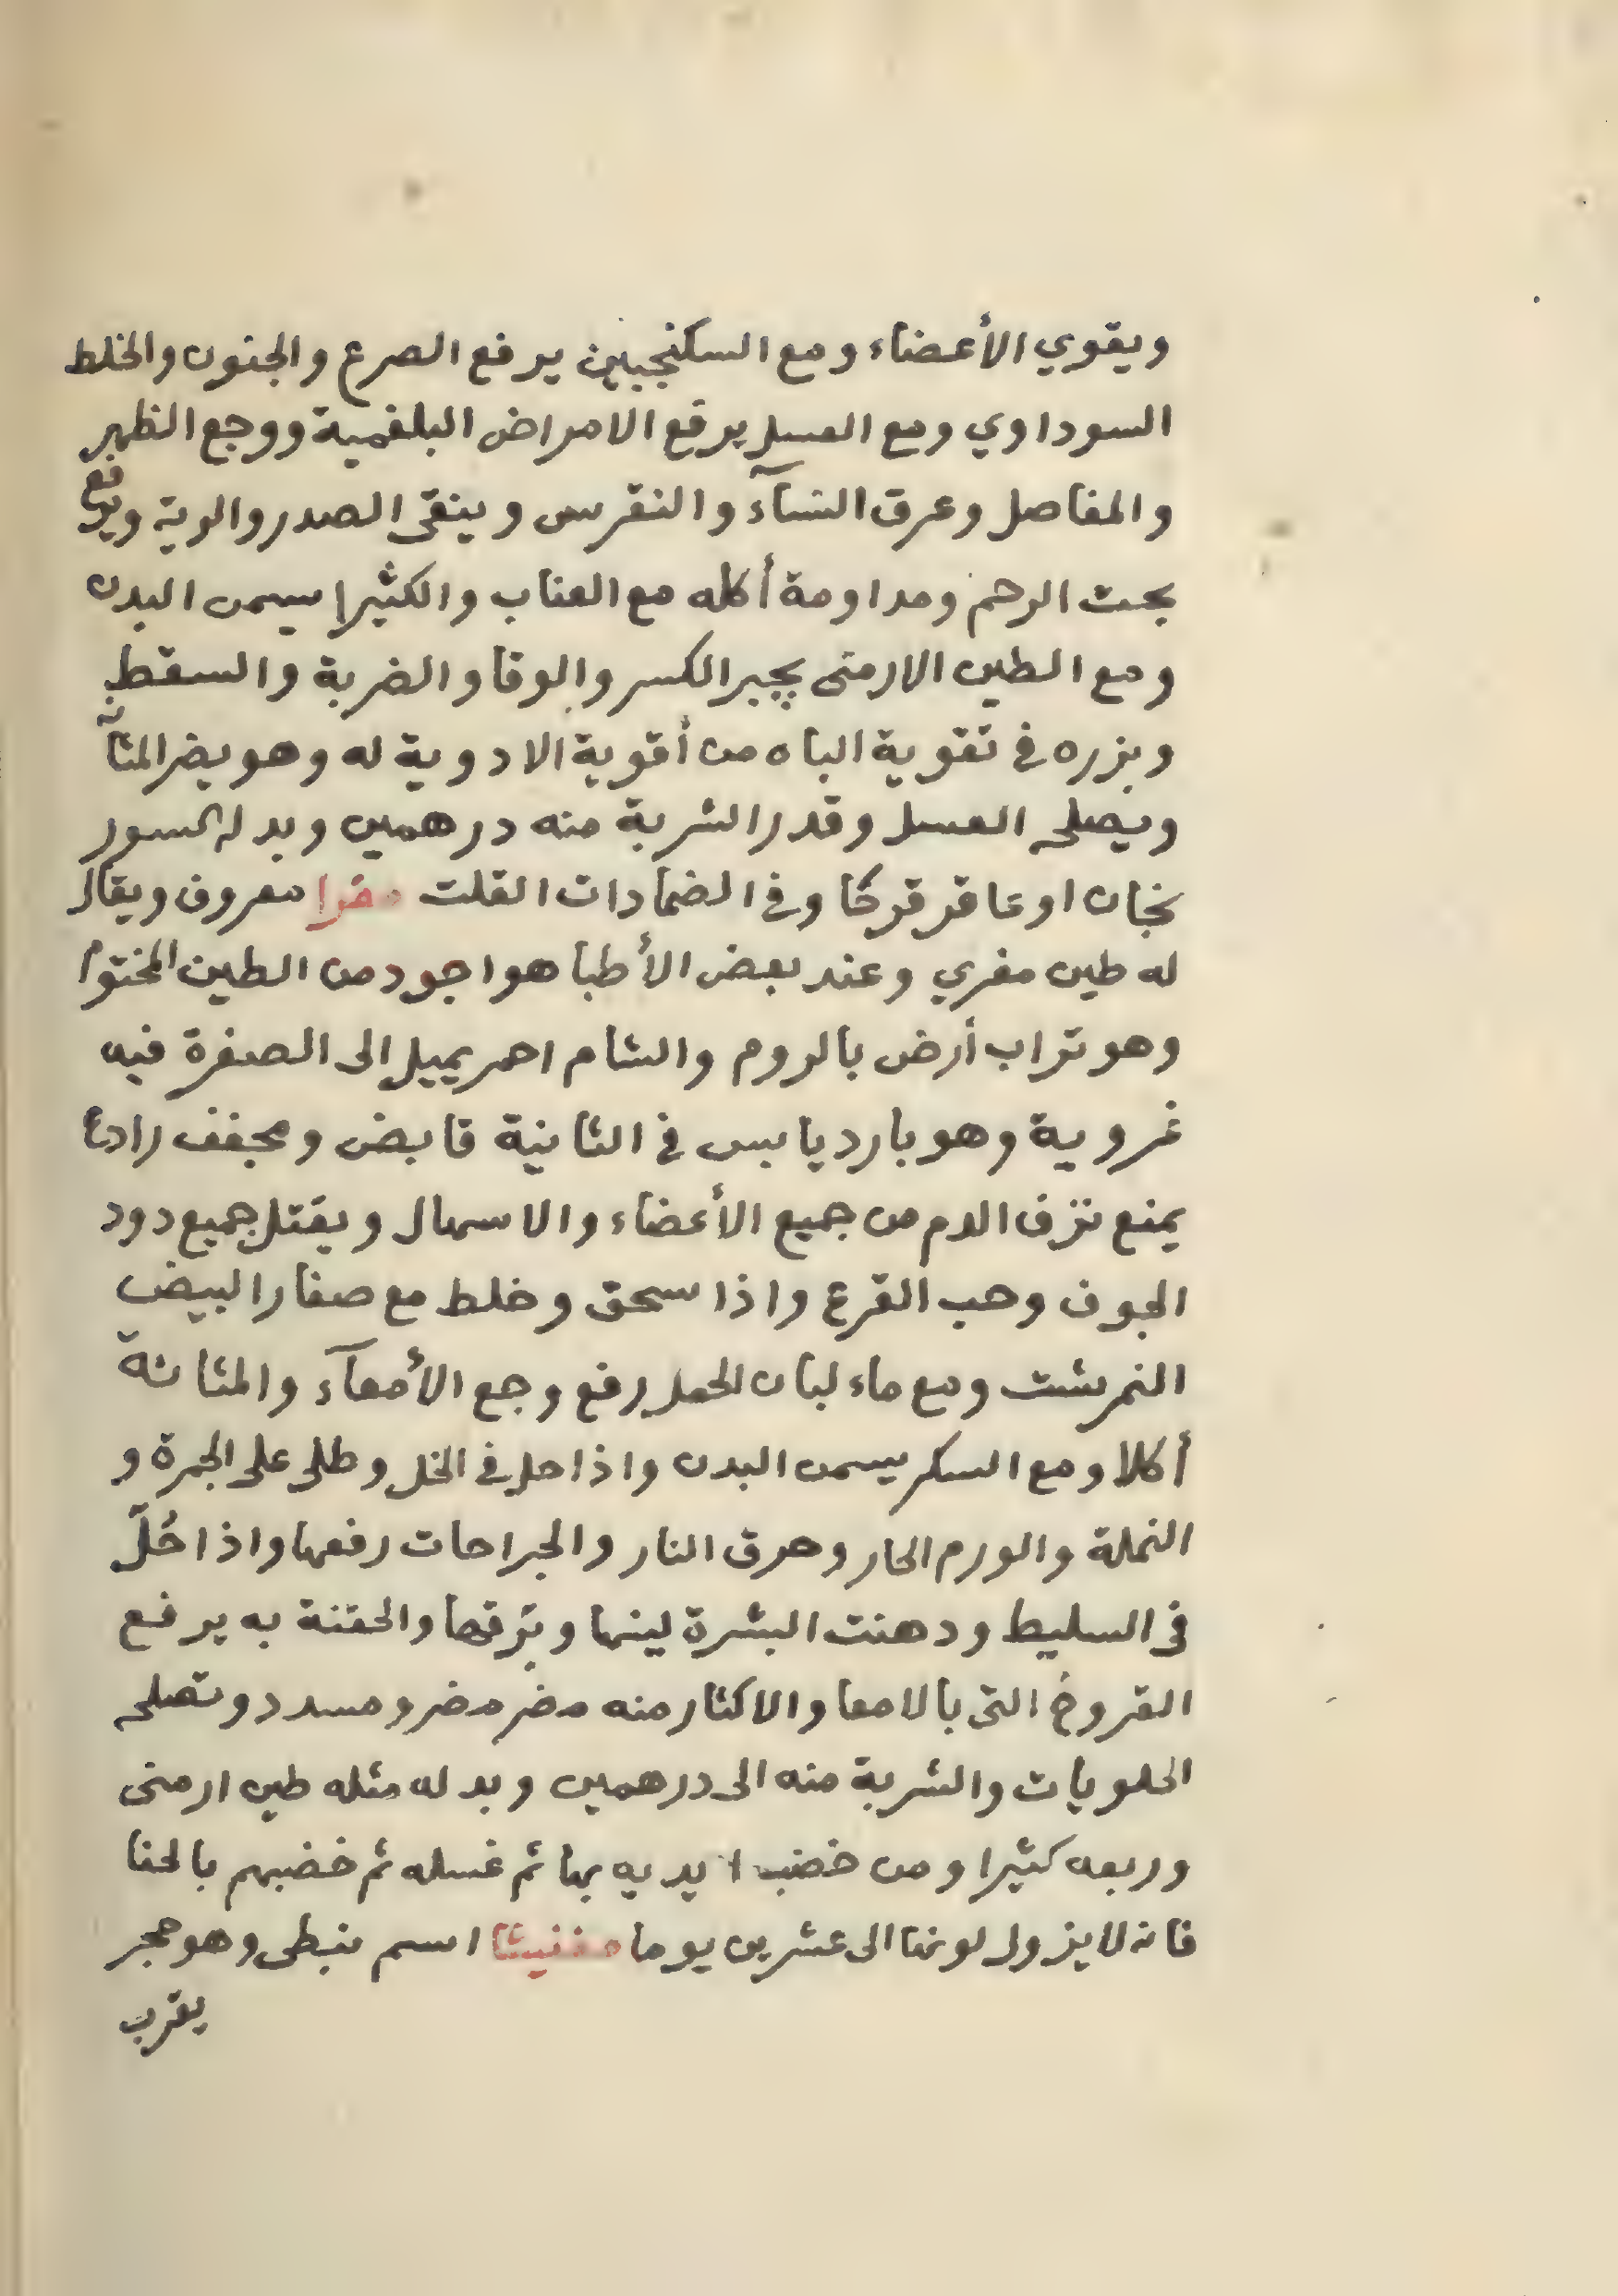 ويقوي الأعضاء ومع السكنجبين يرفع الصرع والجنون والخلط
السوداوي ومع العسل يرفع الامراض البلغمية ووجع الظهر
والمفاصل وعرق النسآء والنقرس وينقى الصدر والرية ويرفع
بحث الرحم ومداومة أكله مع العناب والكثيرا يسمن البدن
ومع الطين الارمنى يجبر الكسر والوقا والضربة والسقط
وبزره في تقوية الباه من أقوية الادوية له وهو يضر المثآ
ويصلحه العسل وقدر الشربة منه درهمين وبدله
او عاقر قرحًا وفي الضمادات القلت مغرا معروف ويقال
له طين مغري وعند بعض الأطبا هو اجود من الطين المختوم
وهو تراب أرض بالروم والشام احمر يميل الى الصفرة فيه
غروية وهو بارد يابس في الثانية قابض ومجفف رادع
يمنع نزف الدم من جميع الأعضاء والاسهال ويقتل جميع دود
الجوف وحب القرع واذا سحق وخلط مع صفار البيض
النمرشت ومع ماء لبان الحمل رفع وجع الأمعآء والمثانة
أكلا ومع السكر يسمن البدن واذا حل في الخل وطلى على الجمرة و
النملة والورم الحار وحرق النار والجراحات رفعها واذا حُلّ
فى السليط ودهنت البشرة لينها وبرقها والحقنة به يرفع
القروح التى بالامعا والاكثار منه مضر مضر ومسدد وتصلحه
الحلويات والشربة منه الى درهمين وبدله مثله طين ارمنى
وربعه كثيرا ومن خضب ايديه بها ثم غسله ثم خضبهم بالحنا
فانه لا يزول لونها الى عشرين يوما مغنيشا اسم نبطى وهو حجر
يقرب